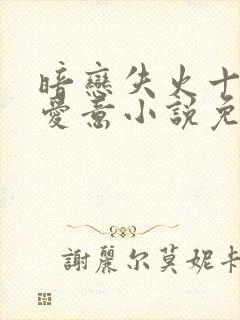 暗戀失火十
愛意小說免
謝麗尔莫妮卡